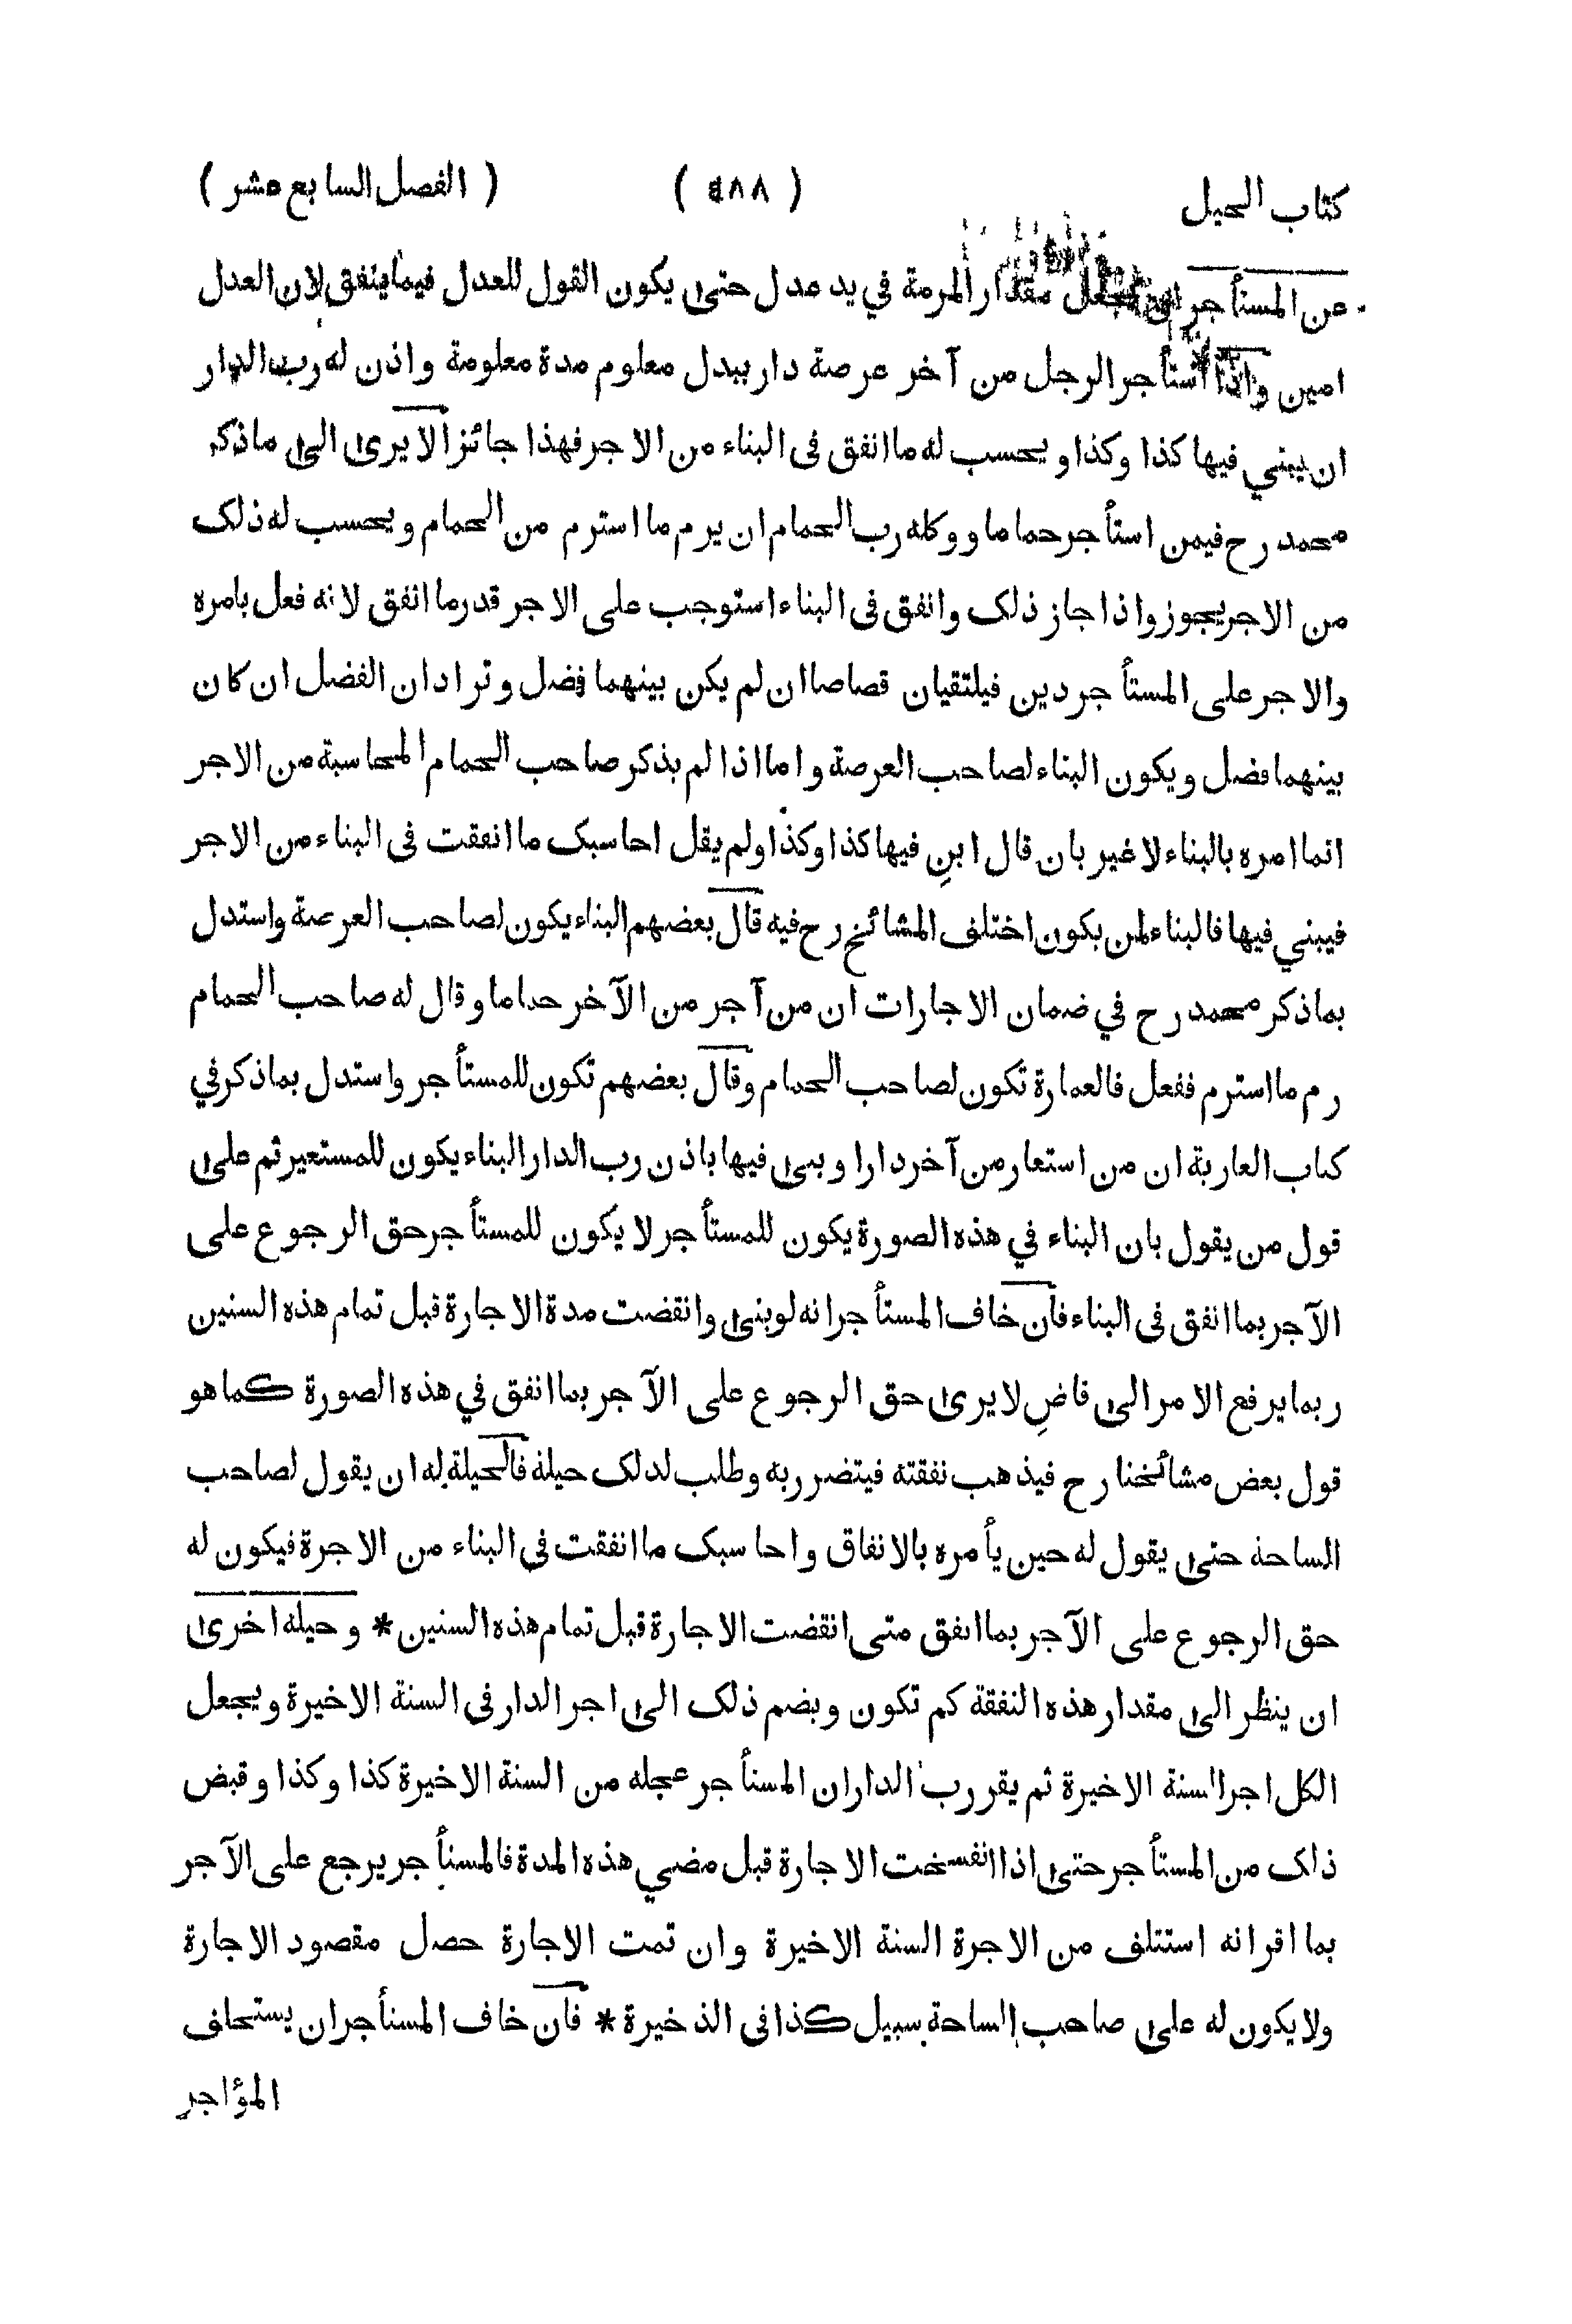 كتاب الحيل ( ٤٨٨ ) ( الفصل السابع عشر )
عن المستأجر ان يجعل مقدار المرمة في يد عدل حتى يكون القول للعدل فيما ينفق لان العدل
امين واذا استأجر الرجل من آخر عرصة دار ببدل معلوم مدة معلومة واذن له رب الدار
ان يبني فيها كذا وكذا ويحسب له ما انفق فى البناء من الاجر فهذا جائز الا يرى الى ماذكر
محمد رح فيمن استأجر حماما ووكله رب الحمام ان يرم ما استرم من الحمام ويحسب له ذلك
من الاجر يجوز واذا جاز ذلك وانفق فى البناء استوجب على الاجر قدر ما انفق لانه فعل بامره
والاجر على المستأجر دين فيلتقيان قصاصا ان لم يكن بينهما فضل وترادان الفضل ان كان
بينهما فضل ويكون البناء لصاحب العرصة واما اذا لم يذكر صاحب الحمام المحاسبة من الاجر
انما امره بالبناء لا غير بان قال ابنِ فيها كذا وكذا ولم يقل احاسبك ما انفقت فى البناء من الاجر
فيبني فيها فالبناء لمن يكون اختلف المشائخ رح فيه قال بعضهم البناء يكون لصاحب العرصة واستدل
بماذكر محمد رح في ضمان الاجارات ان من آجر من الآخر حماما وقال له صاحب الحمام
رم ما استرم ففعل فالعمارة تكون لصاحب الحمام وقال بعضهم تكون للمستأجر واستدل بماذكر في
كتاب العارية ان من استعار من آخر دارا وبنى فيها باذن رب الدار البناء يكون للمستعير ثم على
قول من يقول بان البناء في هذه الصورة يكون للمستأجر لا يكون للمستأجر حق الرجوع على
الآجر بما انفق فى البناء فان خاف المستأجر انه لو بنى وانقضت مدة الاجارة قبل تمام هذه السنين
ربما يرفع الامر الى قاضٍ لا يرى حق الرجوع على الآجر بما انفق في هذه الصورة كما هو
قول بعض مشائخنا رح فيذهب نفقته فيتضرر به وطلب لذلك حيلة فالحيلة له ان يقول لصاحب
الساحة حتى يقول له حين يأمره بالانفاق واحاسبك ما انفقت فى البناء من الاجرة فيكون له
حق الرجوع على الآجر بما انفق متى انقضت الاجارة قبل تمام هذه السنين * وحيلة اخرى
ان ينظر الى مقدار هذه النفقة كم تكون ويضم ذلك الى اجر الدار فى السنة الاخيرة ويجعل
الكل اجر السنة الاخيرة ثم يقر رب الدار ان المستأجر عجله من السنة الاخيرة كذا وكذا وقبض
ذلك من المستأجر حتى اذا انفسخت الاجارة قبل مضي هذه المدة فالمستأجر يرجع على الآجر
بما اقر انه استتلف من الاجرة السنة الاخيرة وان تمت الاجارة حصل مقصود الاجارة
ولا يكون له على صاحب الساحة سبيل كذا فى الذخيرة * فان خاف المستأجر ان يستحلف
المؤاجر